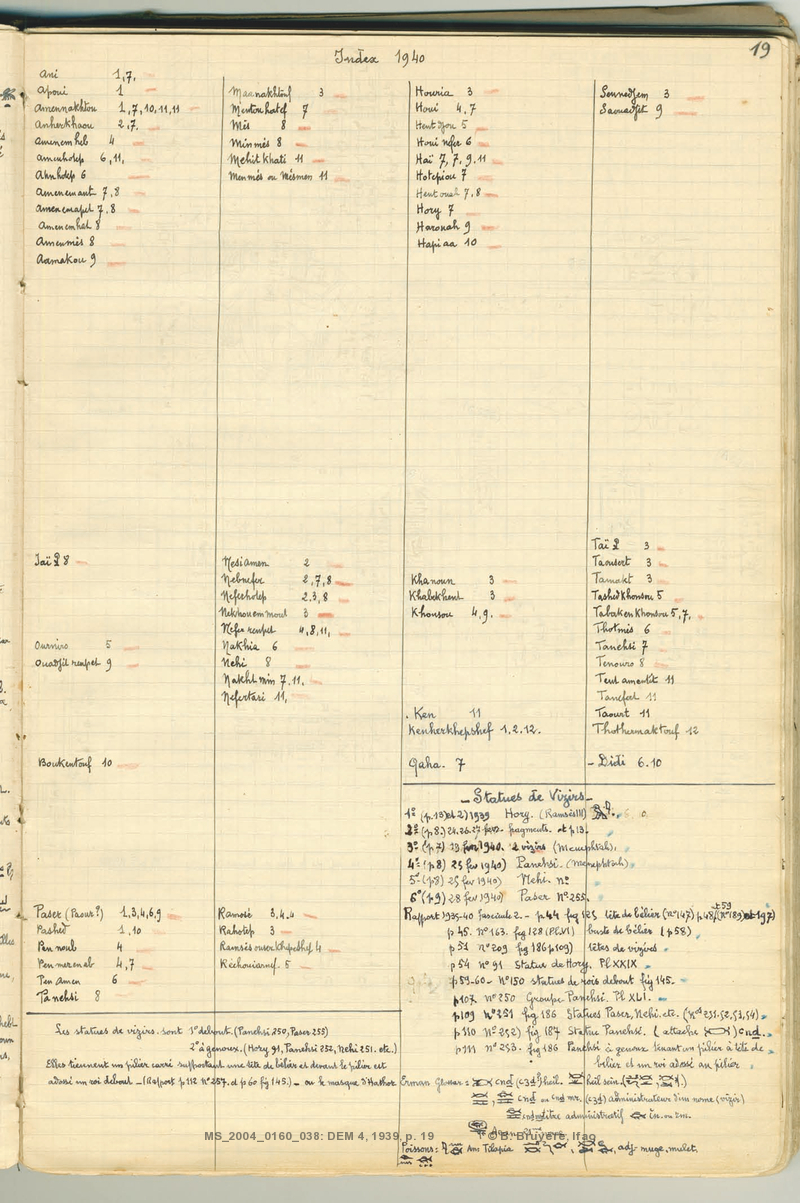 19
Index 1940
Ani 1,7.
Apoui 1
Amennakhtou 1,7,10,11,11
Anherkhaou 2,7.
Amenemheb 4
Amenhotep 6,11,
Ahnhotep 6
Amenemant 7,8
Amenemapet 7,8
Amenemhat 8
Amenmès 8
Aamakou 9
Iaï 8
Ourniro 5
Ouadjit renpet 9
Boukentouf 10
Paser (Paour?) 1,3,4,6,9
Pashed 1,10
Pen noub 4
Pen mer nab 4,7
Pen Amen 6
Panehsi 8
Maanakhtouf 3
Mentouhotef 7
Mès 8
Minmès 8
Mehit Khati 11
Menmès ou Mèsmen 11
Nesiamen 2
Nebnefer 2,7,8
Neferhotep 2,3,8
Nekhouemmout 3
Nefer renpet 4,8,11,
Nakhia 6
Nehi 8
Nakht min 7.11.
Nefertari 11,
Ramosé 3,4.4
Rahotep 3
Ramsès ouserkhepeshef 4
Rechouiarnef. 5
Houria 3
Houi 4.7
Hent Djou 5
Houi nefer 6
Haï 7,7,9.11
Hotepiou 7
Hent ouat 7,8
Hory 7
Harouah 9
Hapi aa 10
Khanoun 3
Khabekhent 3
Khonsou 4,9.
Ken 11
Kenherkhepshef 1.2.12.
Qaha. 7
Sennedjem 3
Saouadjit 9
Taï 3
Taousert 3
Tamakt 3
Tashed Khonsou 5
Tabaken Khonsou 5,7,
Thotmès 6
Tanehsi 7
Tenouro 8
Teut amentit 11
Tanefert 11
Taourt 11
Thothermaktouf 12
- Didi 6.10
- Statues de Vizirs -
1° (p.13) et 2) 1939 Hory. (Ramsès III)
2° (p 8.) 24.26.27 fev. fragments. et p 13.
3° (p 7) 23 fev 1940. 2 vizirs (Menephtah),
4° (p 8) 25 fev 1940) Panehsi. (Menephtah)
5° (p 8) 25 fev 1940) Nehi. n°
6° (p 9) 28 fev 1940) Paser N° 255
Rapport 1935-40 fascicule 2. - p.44 fig 125 tête de bélier (n° 147) p 48 (n° 189) et 197)
+ 59
p 45. n° 163. fig 128 (Pl.VI) buste de bélier (p 58)
p 51 n° 209 fig 186 p 109) têtes de vizirs
p 54 n° 91 Statue de Hory. Pl XXIX
p 59-60 - N° 150 statues de rois debout fig 145.
p 107 n° 250 Groupe Panehsi. Pl XLI.
p 109 n° 251 fig 186 Statues Paser, Nehi. etc. (nos 251.52,53,54)
p 110 N° 252) fig 187 Statue Panehsi. (attache cnd.
p 111 n° 253. fig 186 Panehsi à genoux tenant un pilier à tête de
bélier et un roi adossé au pilier
Les statues de vizirs. sont 1° debout. (Panehsi 250, Paser 255)
2° à genoux. (Hory 91, Panehsi 252, Nehi 251. etc.)
Elles tiennent un pilier carré supportant une tête de bélier et devant le pilier est
adossé un roi debout - (Rapport p 112 N° 257. et p 60 fig 145.) - ou le masque d'Hathor
Erman Glossar: cnd (c3d) heil.
cnd ou cnd mr. (c3d) administrateur d'un nome (vizir)
titre administratif
Poissons: Tilapia adj- muge, mulet.
MS_2004_0160_038: DEM 4, 1939, p. 19 © B. Bruyère, Ifao